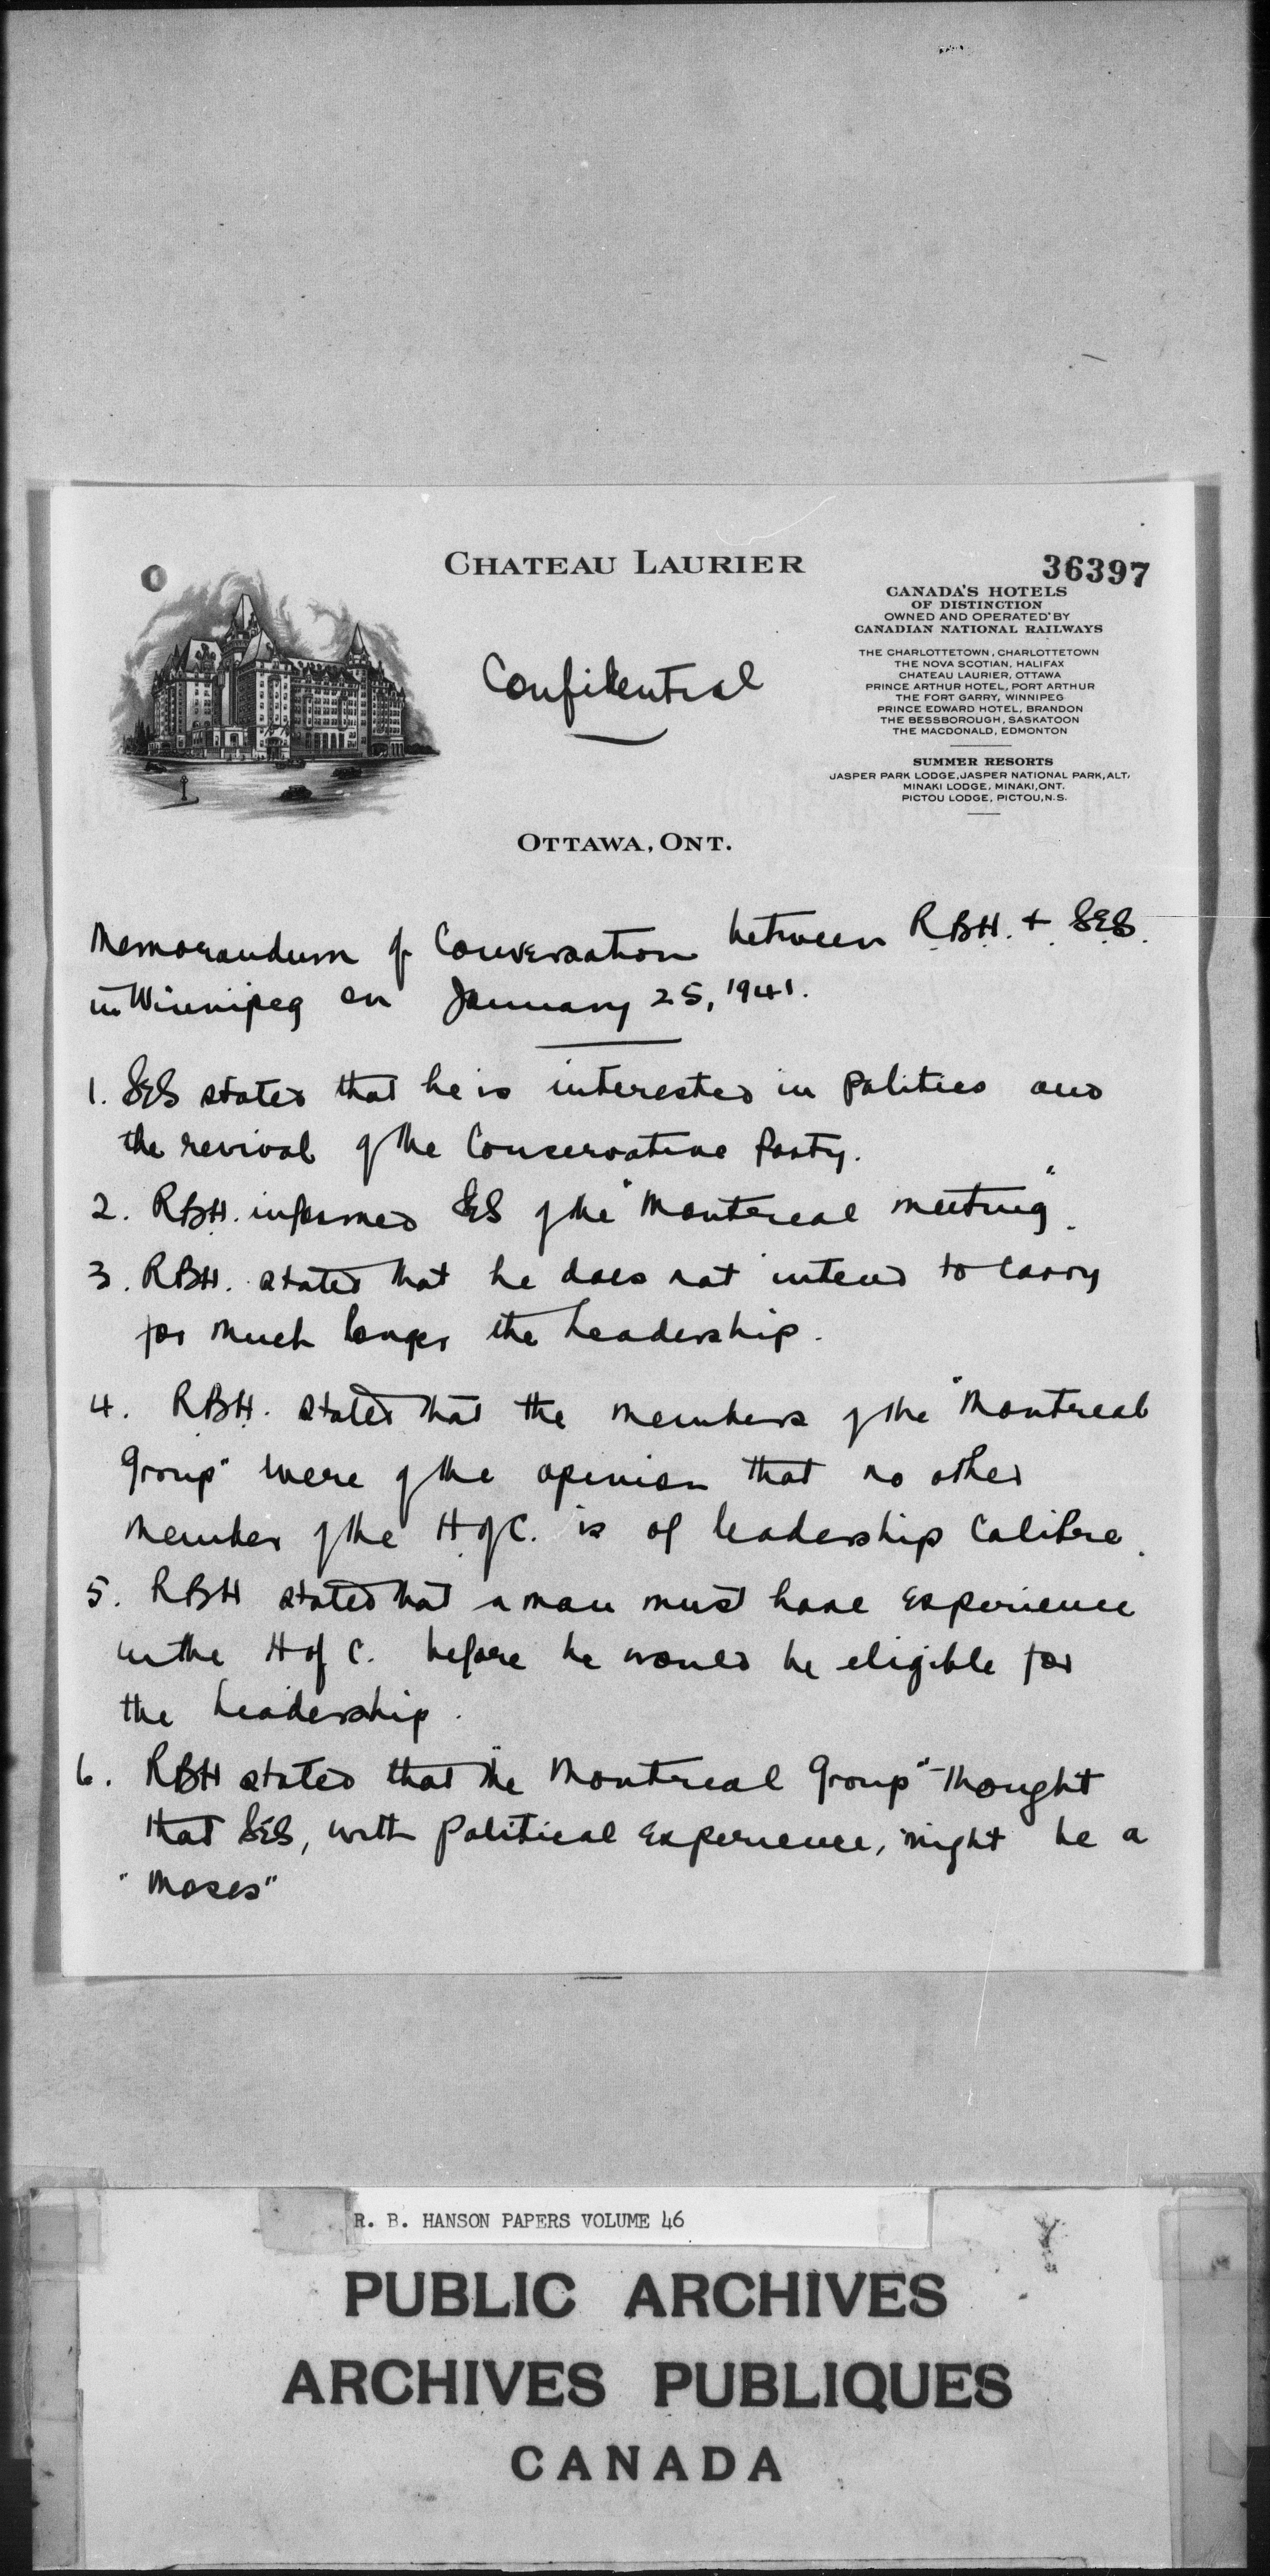 CHATEAU LAURIER
36397
CANADA'S HOTELS
OF DISTINCTION
OWNED AND OPERATED BY
CANADIAN NATIONAL RAILWAYS
THE CHARLOTTETOWN, CHARLOTTETOWN
THE NOVA SCOTIAN, HALIFAX
CHATEAU LAURIER, OTTAWA
PRINCE ARTHUR HOTEL, PORT ARTHUR
THE FORT GARRY, WINNIPEG
PRINCE EDWARD HOTEL, BRANDON
THE BESSBOROUGH, SASKATOON
THE MACDONALD, EDMONTON
SUMMER RESORTS
JASPER PARK LODGE, JASPER NATIONAL PARK, ALT.
MINAKI LODGE, MINAKI, ONT.
PICTOU LODGE, PICTOU, N.S.
Confidential
OTTAWA, ONT.
Memorandum of Conversation between R.B.H. + S.E.S.
in Winnipeg on January 25, 1941.
1. SES stated that he is interested in politics and
the revival of the Conservative Party.
2. R.B.H. informed SES of the "Montreal meeting".
3. R.B.H. stated that he does not intend to carry
for much longer the Leadership.
4. R.B.H. stated that the members of the "Montreal
Group" were of the opinion that no other
member of the H. of C. is of leadership Calibre.
5. RBH stated that a man must have experience
in the H of C. before he would be eligible for
the Leadership.
6. RBH stated that the "Montreal Group" thought
that SES, with political experience, might be a
"Moses"
R. B. HANSON PAPERS VOLUME 46
PUBLIC ARCHIVES
ARCHIVES PUBLIQUES
CANADA